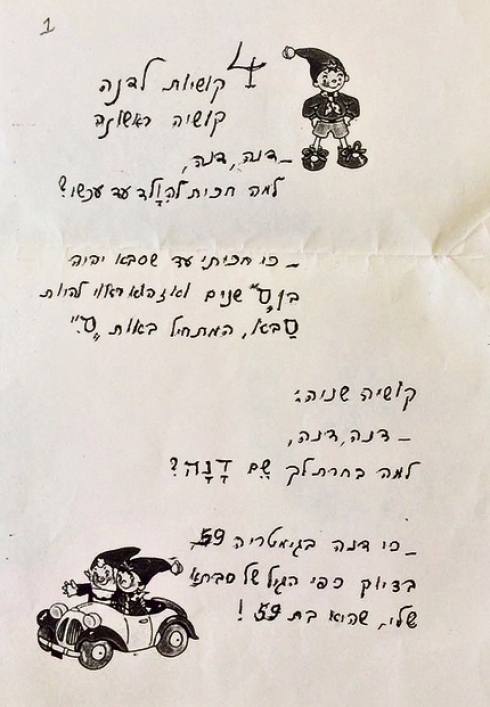 1
4 קושיות לדנה
קושיה ראשונה
– דנה, דנה,
למה חכית להִוָלד עד עכשו?
– כי חכיתי עד שסבא יהיה
בן „ס" שנים ואז הוא ראוי להיות
סַבא, המתחיל באות „ס".
קושיה שניה:
– דנה, דנה,
למה בחרת לך שֵם דָנָה?
– כי דנה בגימטריה 59,
בדיוק כפי הגיל של סבתי
שלי, שהיא בת 59!